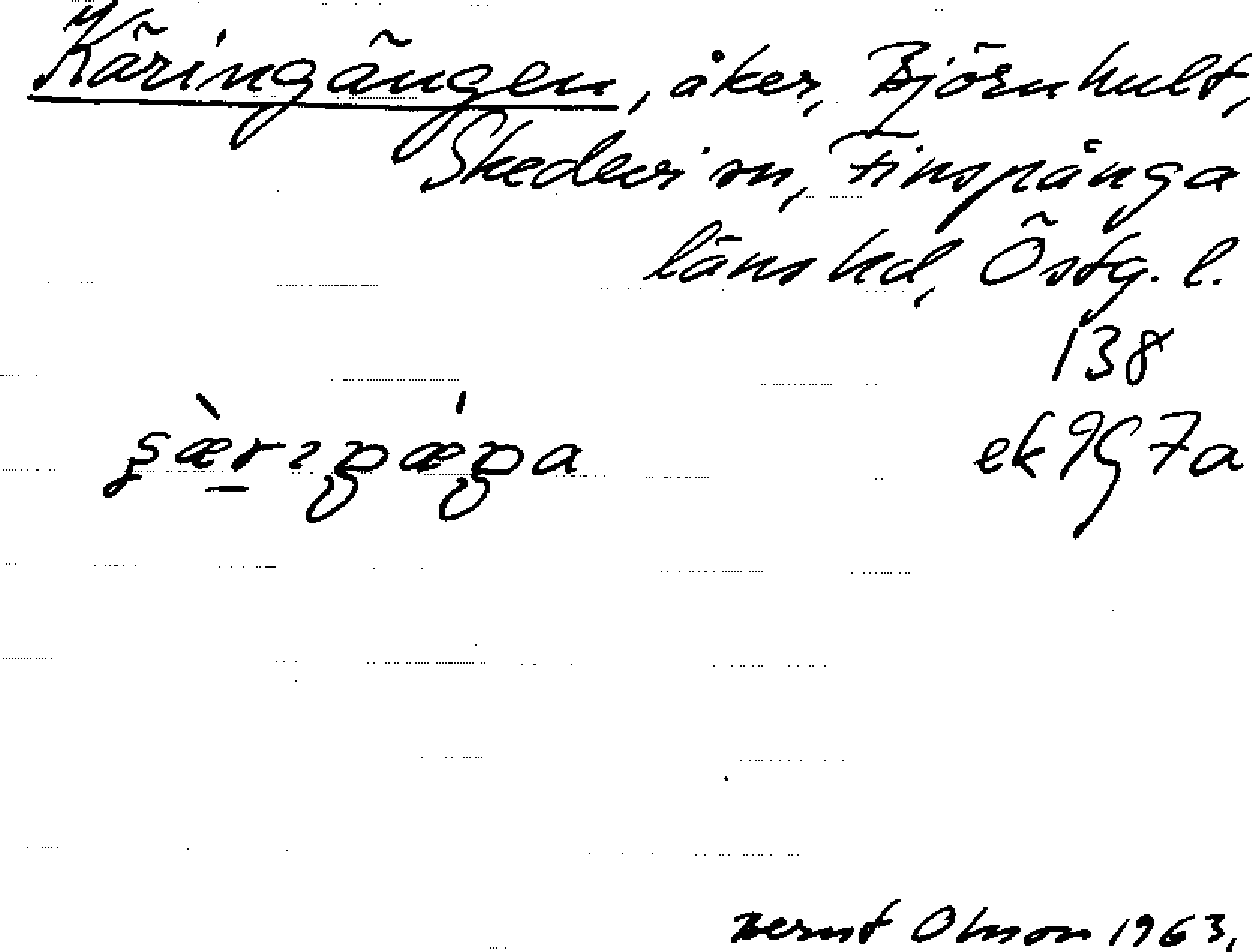 Käringängen, åker, Björnhult,
Skedevi sn, Finspånga
läns hd, Östg. l.
138
ek 9G7a
Bernt Olsson 1963.